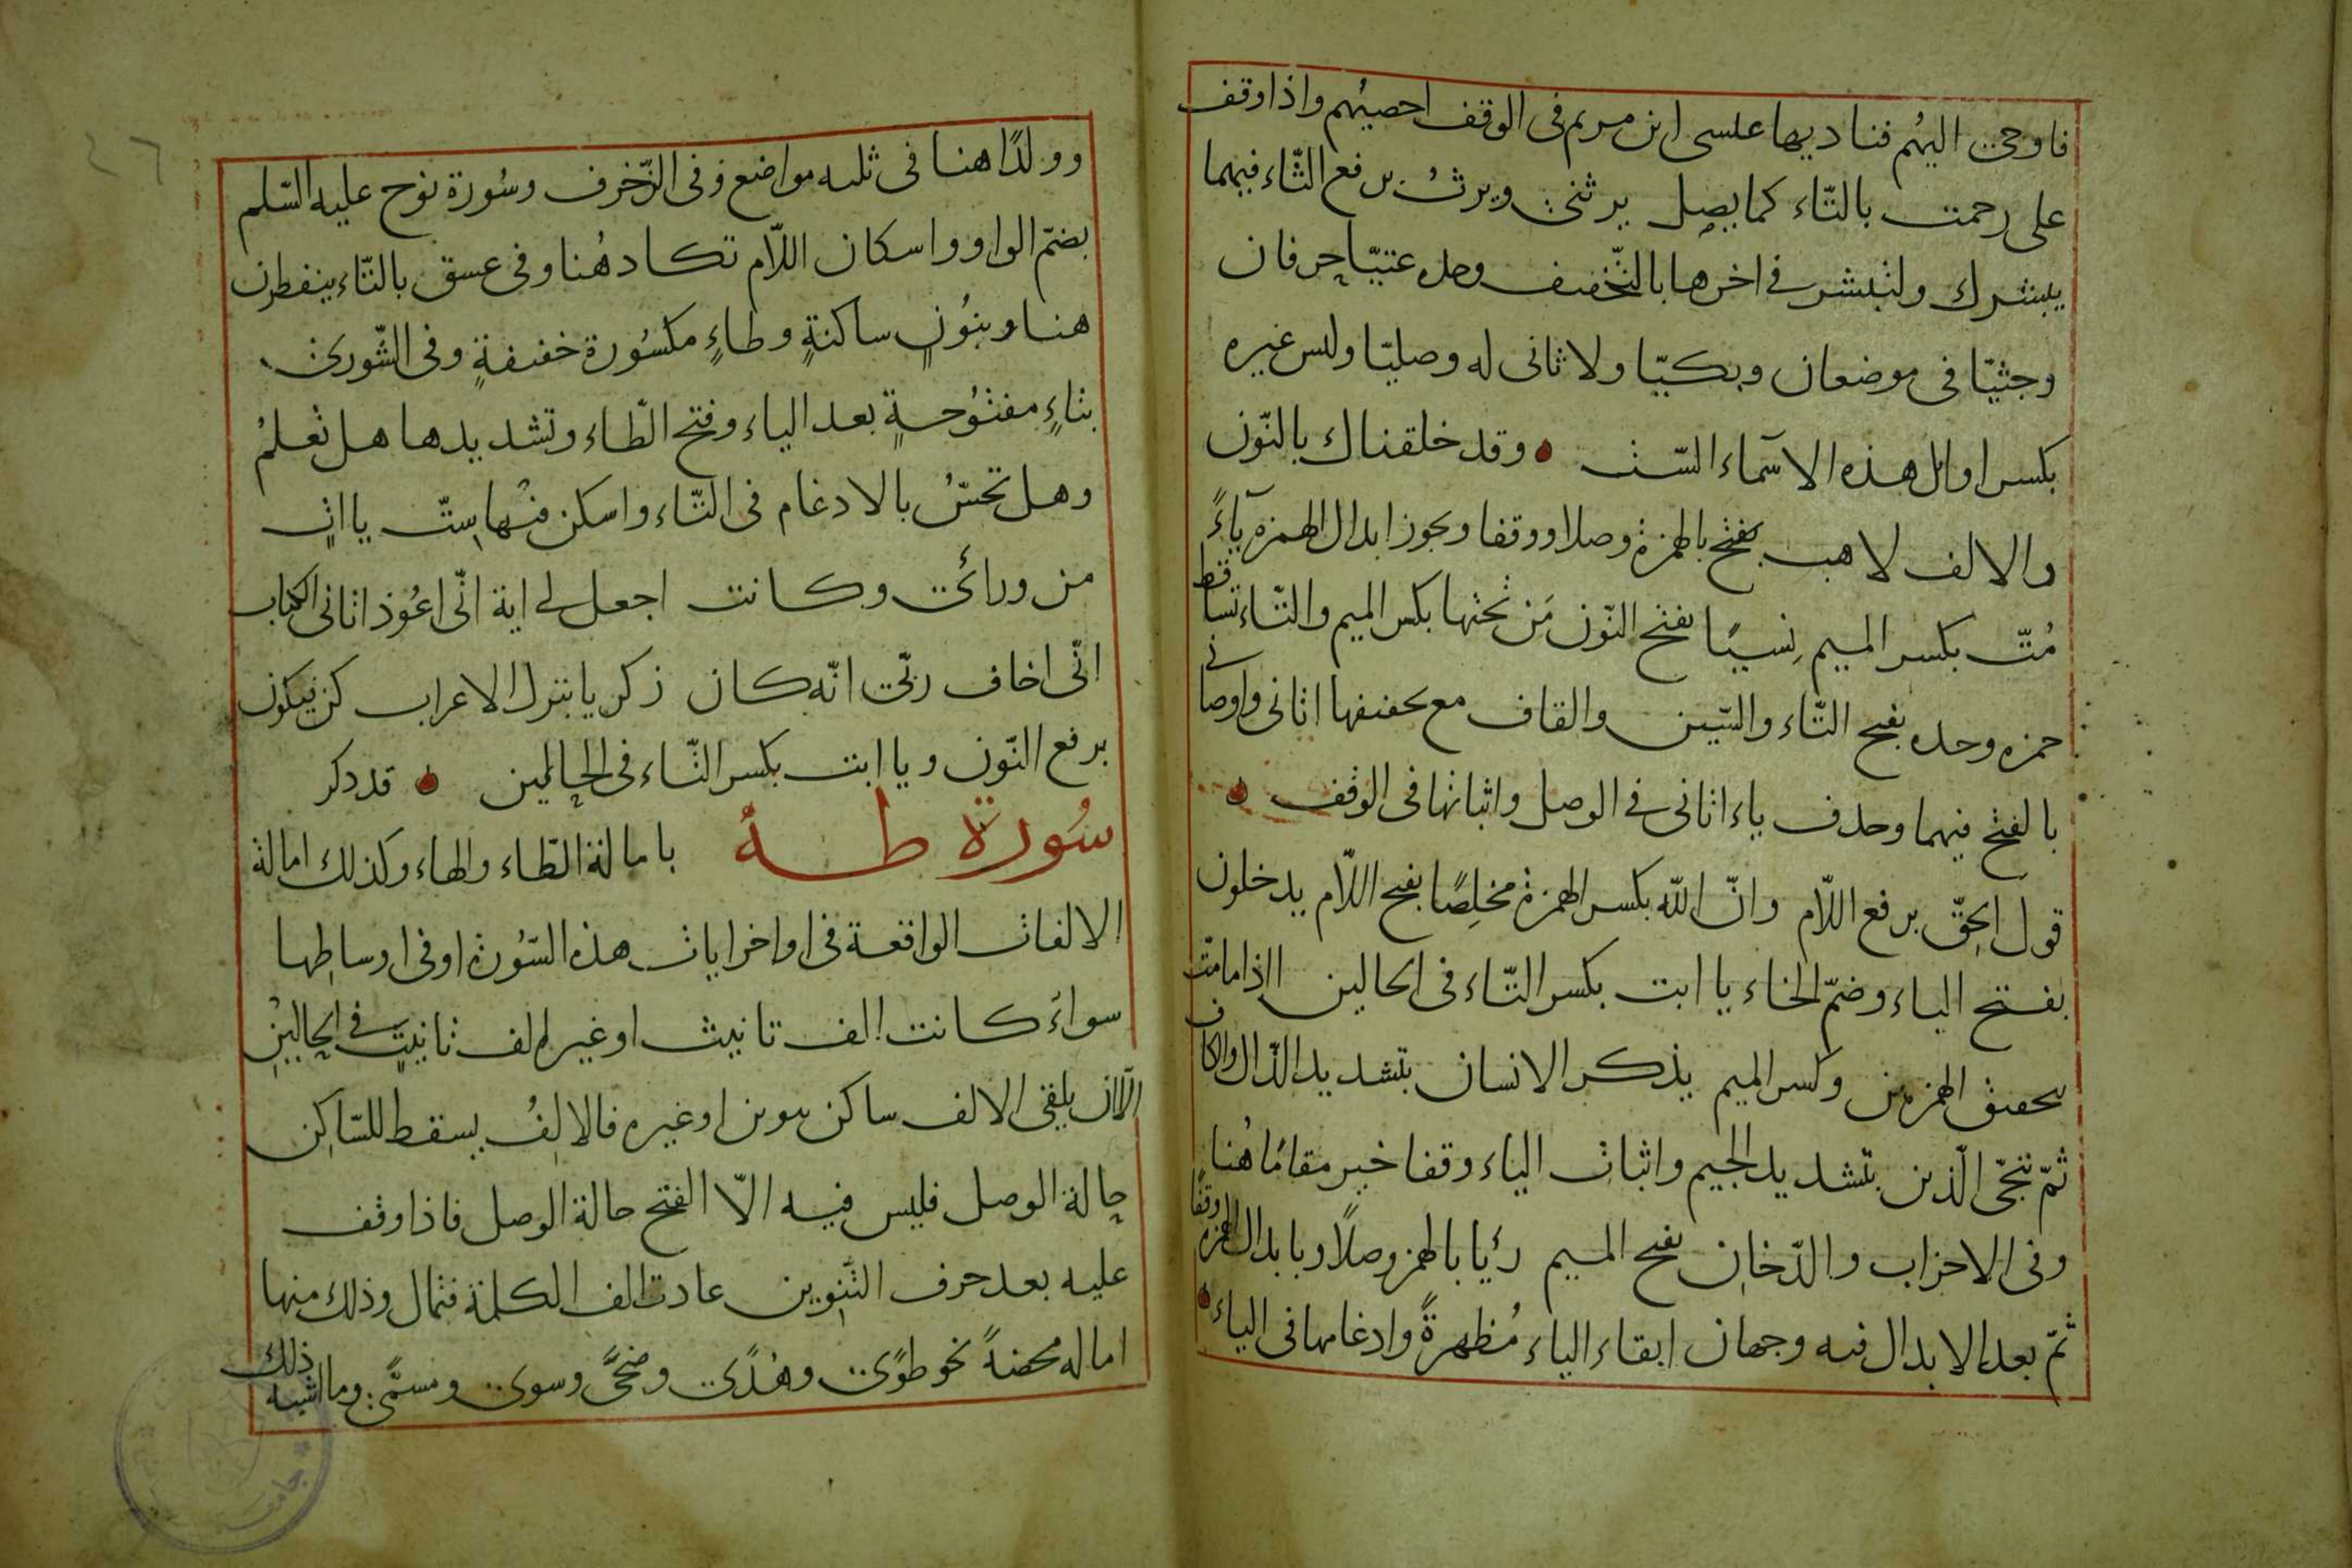 فاوحى اليهم فناديها عيسى ابن مريم فى الوقف احصيهم واذا وقف
على رحمت بالتاء كما يصل يرثنى ويرث برفع الثاء فيهما
يبشرك ولتبشر فى اخرها بالتخفيف وحده عتيّا حرفان
وجثيّا فى موضعان وبكيّا ولا ثانى له وصليّا وليس غيره
بكسر اوائل هذه الاسماء الستّ وقد خلقناك بالنّون
والالف لاهب بفتح بالهمزة وصلا ووقفا ويجوز ابدال الهمزه ياءً
مُتّ بكسر الميم نسيًا بفتح النّون مَن تحتها بكسر الميم والتّاء تساقط
حمزه وحده بفتح التّاء والسّين والقاف مع تخفيفها اتانى واوصانى
بالفتح فيهما وحذف ياء اتانى فى الوصل واثباتها فى الوقف
قول الحقّ برفع اللّام وانّ الله بكسر الهمزة مخلِصًا بفتح اللّام يدخلون
بفتح الياء وضمّ الخاء يا ابت بكسر التّاء فى الحالين ااذا مامتّ
بتحقيق الهمزتين وكسر الميم يذكر الانسان بتشديد الذّال والكاف
ثمّ ننجّى الّذين بتشديد الجيم واثبات الياء وقفا خير مقامًا هُنا
وفى الاحزاب والدّخان بفتح الميم رئيا بالهمز وصلًا وبابدال الهمزه وقفًا
ثمّ بعد الابدال فيه وجهان ابقاء الياء مُظهرةً وادغامها فى الياء
وولدًا هنا فى ثلثه مواضع وفى الزّخرف وسُورة نوح عليه السّلم
بضمّ الواو واسكان اللّام تكاد هُنا وفى عسق بالتّاء ينفطرن
هنا وبنُونٍ ساكنةٍ وطاءٍ مكسُورة خفيفةٍ وفى الشّورى
بتاءٍ مفتُوحةٍ بعد الياء وفتح الطّاء وتشديدها هل تعلمُ
وهل تحسّ بالادغام فى التّاء واسكن فيها ستّ ياات
من ورائى وكانت اجعل لى اية انّى اعُوذ اتانى الكتاب
انّى اخاف ربّى انّه كان ذكر يا بتنزل الاعراب كن فيكون
برفع النّون ويا ابت بكسر التّاء فى الحالين قد ذكر
سُورة طه بامالة الطّاء والهاء وكذلك امالة
الالفات الواقعة فى اواخر ايات هذه السّورة او فى اوساطها
سواءً كانت الف تانيث او غير الف تانيث فى الحالين
الّا ان يلقى الالف ساكن بتنوين او غيره فالالِفُ يسقط للسّاكن
حالة الوصل فليس فيه الّا الفتح حالة الوصل فاذا وقف
عليه بعد حرف التّنوين عادت الف الكلمة فتمال وذلك منها
اماله محضةً نحو طوًى وهُدًى وضحًى وسوى ومسمًّى وما اشبه ذلك